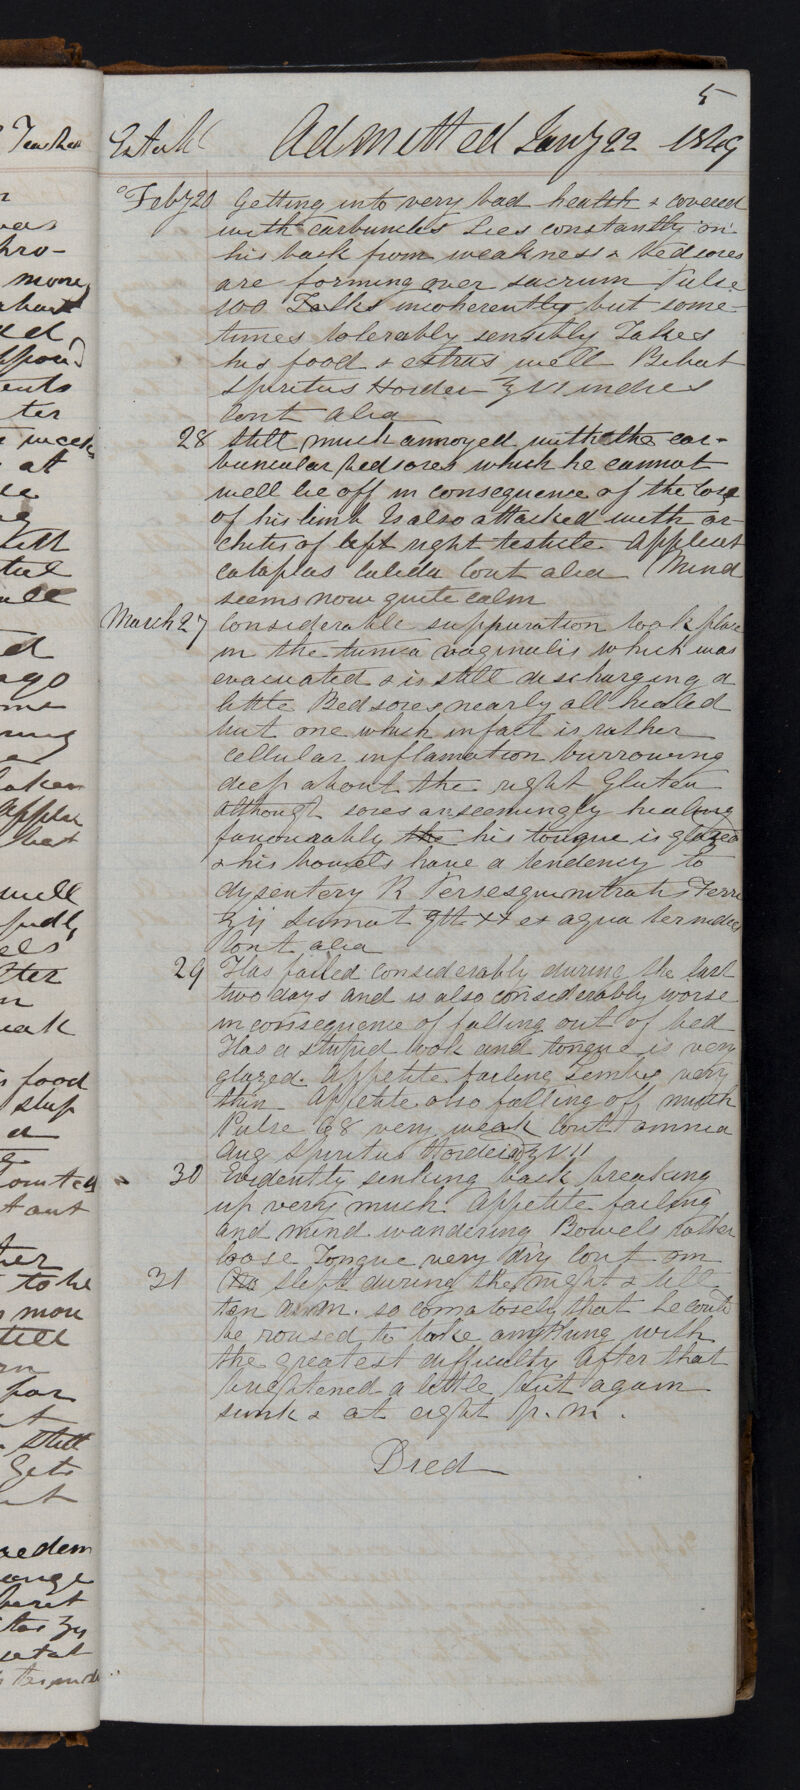 5
Admitted Jany 22 1869
Feby 20 Getting into very bad health & covered
with carbuncles Lies constantly on
his back from weakness & bedsores
are forming over sacrum Pulse
100 Talks incoherently but some-
times tolerably sensibly Takes
his food & extras well Bibat
Spiritus Hordei ℥VI indies
Cont alia
28 Still much annoyed with the car-
buncular bedsores which he cannot
well be off in consequence of the loss
of his limb Is also attacked with or-
chitis of left right testicle. Applicet
cataplas calida Cont alia Mind
seems now quite calm
March 27 Considerable suppuration took place
in the tunica vaginalis which was
evacuated & is still discharging a
little Bedsores nearly all healed
but one which infact is rather
cellular inflamation burrowing
deep about the right Gluteu
although sores are seemingly healing
favourably the his tongue is glazed
& his bowels have a tendency to
dysentery R Persesquinitratis Ferri
℥ij Sumat gtt XX ex aqua ter indies
Cont alia
29 Has failed considerably during the last
two days and is also considerably worse
in consequence of falling out of bed
Has a stupid look and tongue is very
glazed. Appetite failing Limbs very
thin Appetite also falling off much
Pulse 68 very weak Cont omnia
Aug Spiritus Hordei ad ℥VII
30 Evidently sinking back breaking
up very much. Appetite failing
and mind wandering Bowels rather
loose Tongue very dry Cont om
31 Has slept during the night & till
ten a.m. so comatosely that he could
be roused to take anything with
the greatest difficulty After that
brightened a little but again
sunk & at eight p.m.
Died